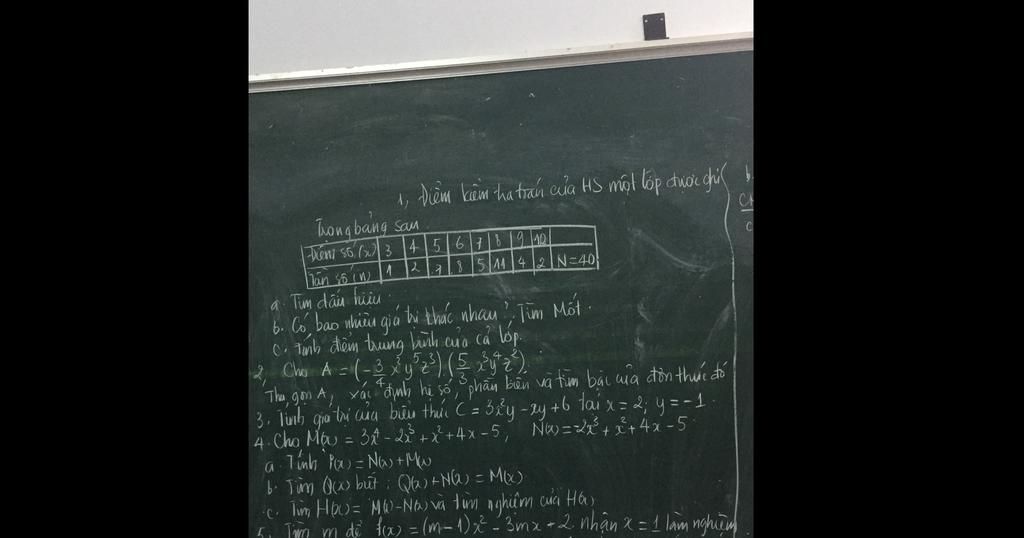 1, Điểm kiểm tra toán của HS một lớp được ghi
Trong bảng sau
Điểm số (x) 3 4 5 6 7 8 9 10
Tần số (n) 1 2 7 8 5 11 4 2 N=40
a. Tìm dấu hiệu.
b. Có bao nhiêu giá trị khác nhau? Tìm Mốt.
c. Tính điểm trung bình của cả lớp.
2, Cho A = (-3/4 x²y⁵z³)(5/3 x³y⁴z²).
Thu gọn A, xác định hệ số, phần biến và tìm bậc của đơn thức đó
3. Tính giá trị của biểu thức C = 3x²y - xy + 6 tại x = 2; y = -1.
4. Cho M(x) = 3x⁴ - 2x³ + x² + 4x - 5; N(x) = 2x³ + x² + 4x - 5
a. Tính P(x) = N(x) + M(x)
b. Tìm Q(x) biết: Q(x) + N(x) = M(x)
c. Tìm H(x) = M(x) - N(x) và tìm nghiệm của H(x)
5. Tìm m để f(x) = (m-1)x² - 3mx + 2 nhận x = 1 làm nghiệm
b.